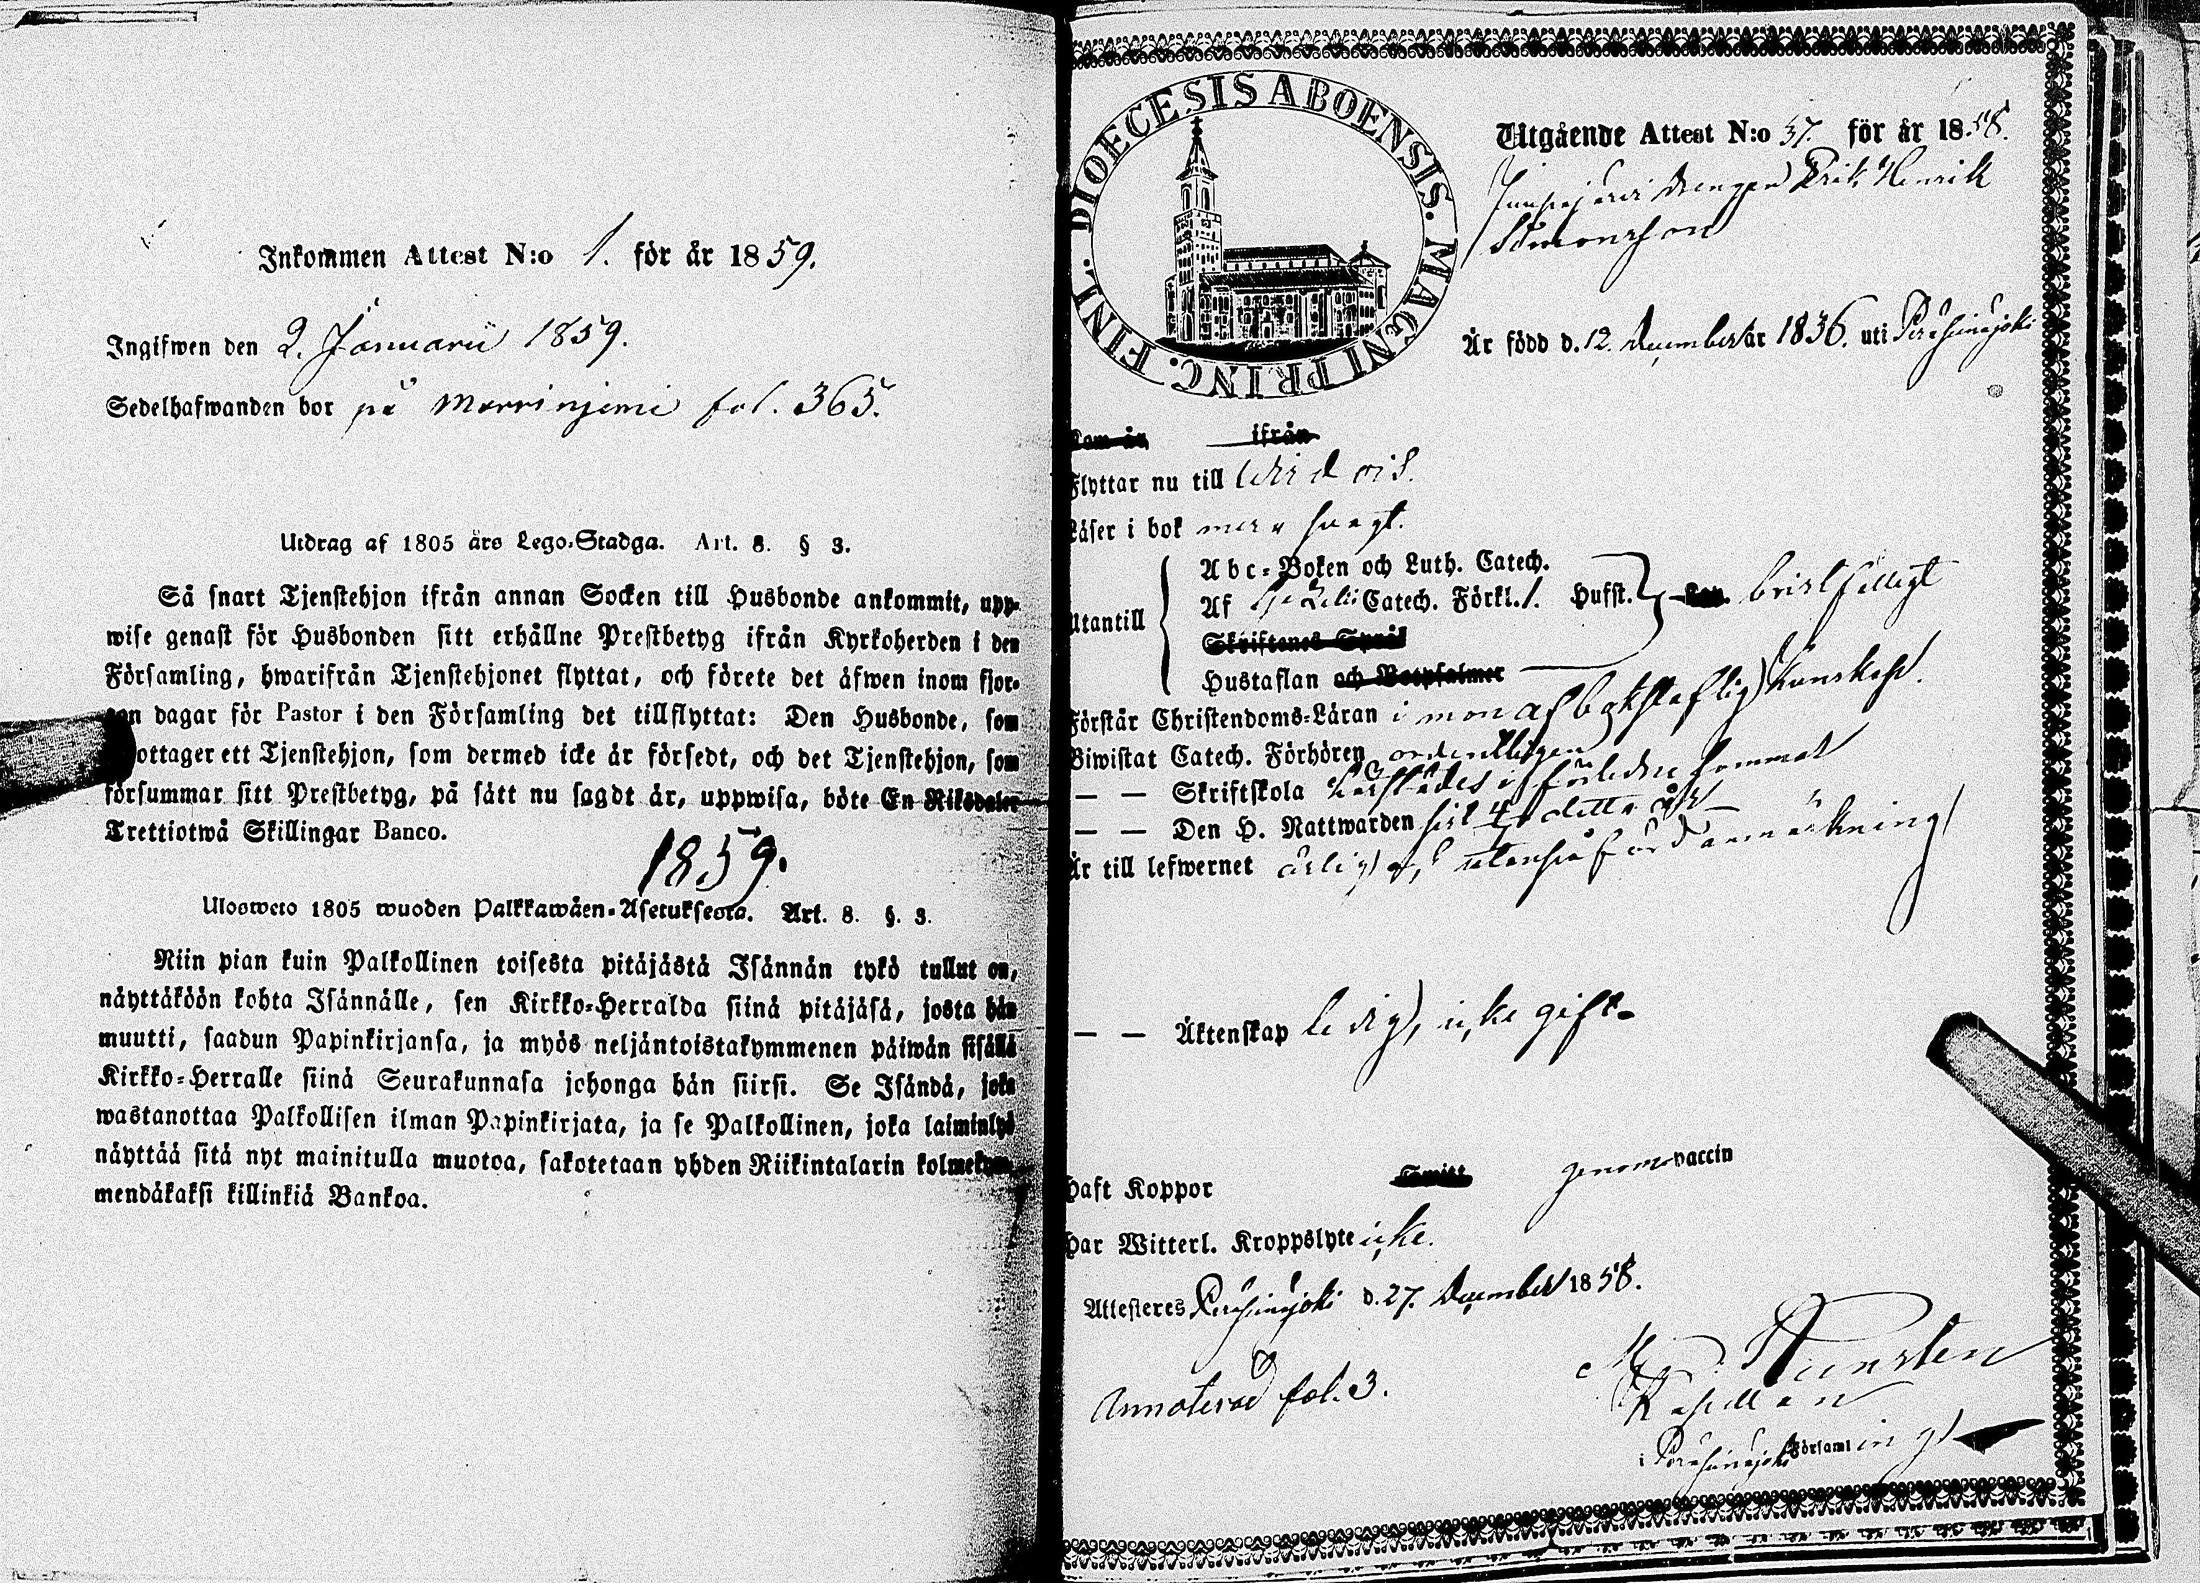 Inkommen Attest N:o 1. för år 1859.
Ingifwen den 2. Januarii 1859.
Sedelhafwanden bor på Marrinjemi fol. 365.
Utdrag af 1805 års Lego-Stadga. Art. 8. § 3.
Så snart Tjenstehjon ifrån annan Socken till Husbonde ankommit, upp-
wise genast för Husbonden sitt erhållne Prestbetyg ifrån Kyrkoherden i den
Församling, hwarifrån Tjenstehjonet flyttat, och förete det äfwen inom fjor-
dagar för Pastor i den Församling det tillflyttat: Den Husbonde, som
ottager ett Tjenstehjon, som dermed icke är försedt, och det Tjenstehjon, som
försummar sitt Prestbetyg, på sätt nu sagdt är, uppwisa, böte En Riksdaler
Trettiotwå Skillingar Banco.
1859.
Ulosweto 1805 wuoden Palkkawäen-Asetuksesta. Art. 8. §. 3.
Niin pian kuin Palkollinen toisesta pitäjästä Isännän tykö tullut on,
näyttäköön kohta Isännälle, sen Kirkko-Herralda siinä pitäjäsä, josta hän
muutti, saadun Papinkirjansa, ja myös neljäntoistakymmenen päiwän sisällä
Kirkko-Herralle siinä Seurakunnasa johonga hän siirsi. Se Isändä, joka
wastanottaa Palkollisen ilman Papinkirjata, ja se Palkollinen, joka laiminlyö
näyttää sitä nyt mainitulla muotoa, sakotetaan yhden Riikintalarin kolmekym-
mendäkaksi killinkiä Bankoa.
DIOECESIS ABOENSIS. MAGNI PRINC. FINL.
Utgående Attest N:o 37. för år 1858.
drengen Erik Henrik
Simonsson
Är född d. 12. December år 1836. uti Peräseinäjoki
Kom år ifrån
Flyttar nu till Wirdois.
Läser i bok swagt.
Utantill
Abc-Boken och Luth. Catech.
Af Catech. Förkl. 1. Hufst. bristfälligt
Skriftenes Språk
Hustaflan och Botpsalmer
Förstår Christendoms-Läran i mon af bokstaflig kunskap.
Biwistat Catech. Förhören ordentligen
— — Skriftskola förleden sommar
— — Den H. Nattwarden sist detta år
Är till lefwernet ärlig och utan anmärkning
— — Äktenskap ledig, icke gift.
Haft Koppor genom vaccin
Har Witterl. Kroppslyte icke.
Attesteras Peräseinäjoki d. 27. December 1858.
Annoterad fol. 3.
Kapellan
i Peräseinäjoki Församling